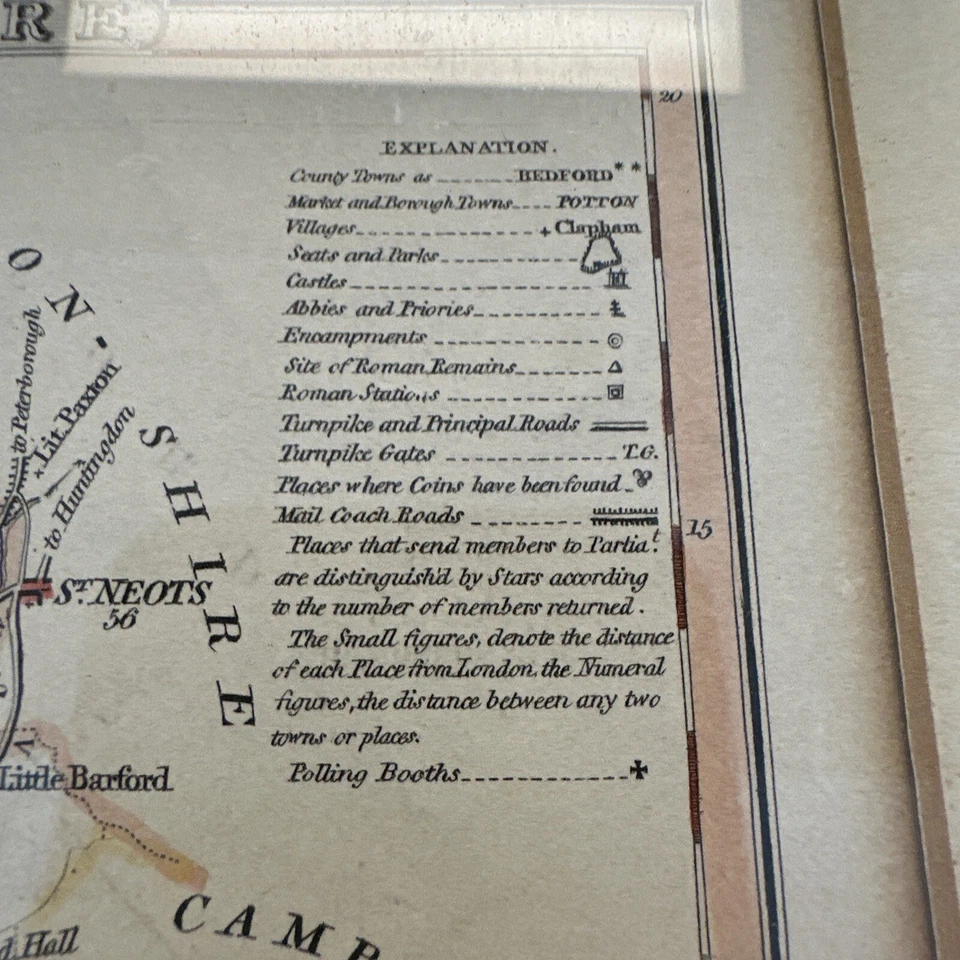 RE
20
EXPLANATION.
County Towns as ........ BEDFORD**
Market and Borough Towns.... POTTON
Villages........ + Clapham
Seats and Parks........
Castles........
Abbies and Priories........
Encampments ........
Site of Roman Remains........
Roman Stations ........
Turnpike and Principal Roads
Turnpike Gates ........ T.G.
Places where Coins have been found..
Mail Coach Roads ........
Places that send members to Parliat.
are distinguish'd by Stars according
to the number of members returned.
The Small figures, denote the distance
of each Place from London, the Numeral
figures, the distance between any two
towns or places.
Polling Booths........
15
ON-SHIRE
to Peterborough
Lit. Paxton
to Huntingdon
ST. NEOTS
56
Little Barford
Hall
CAMB